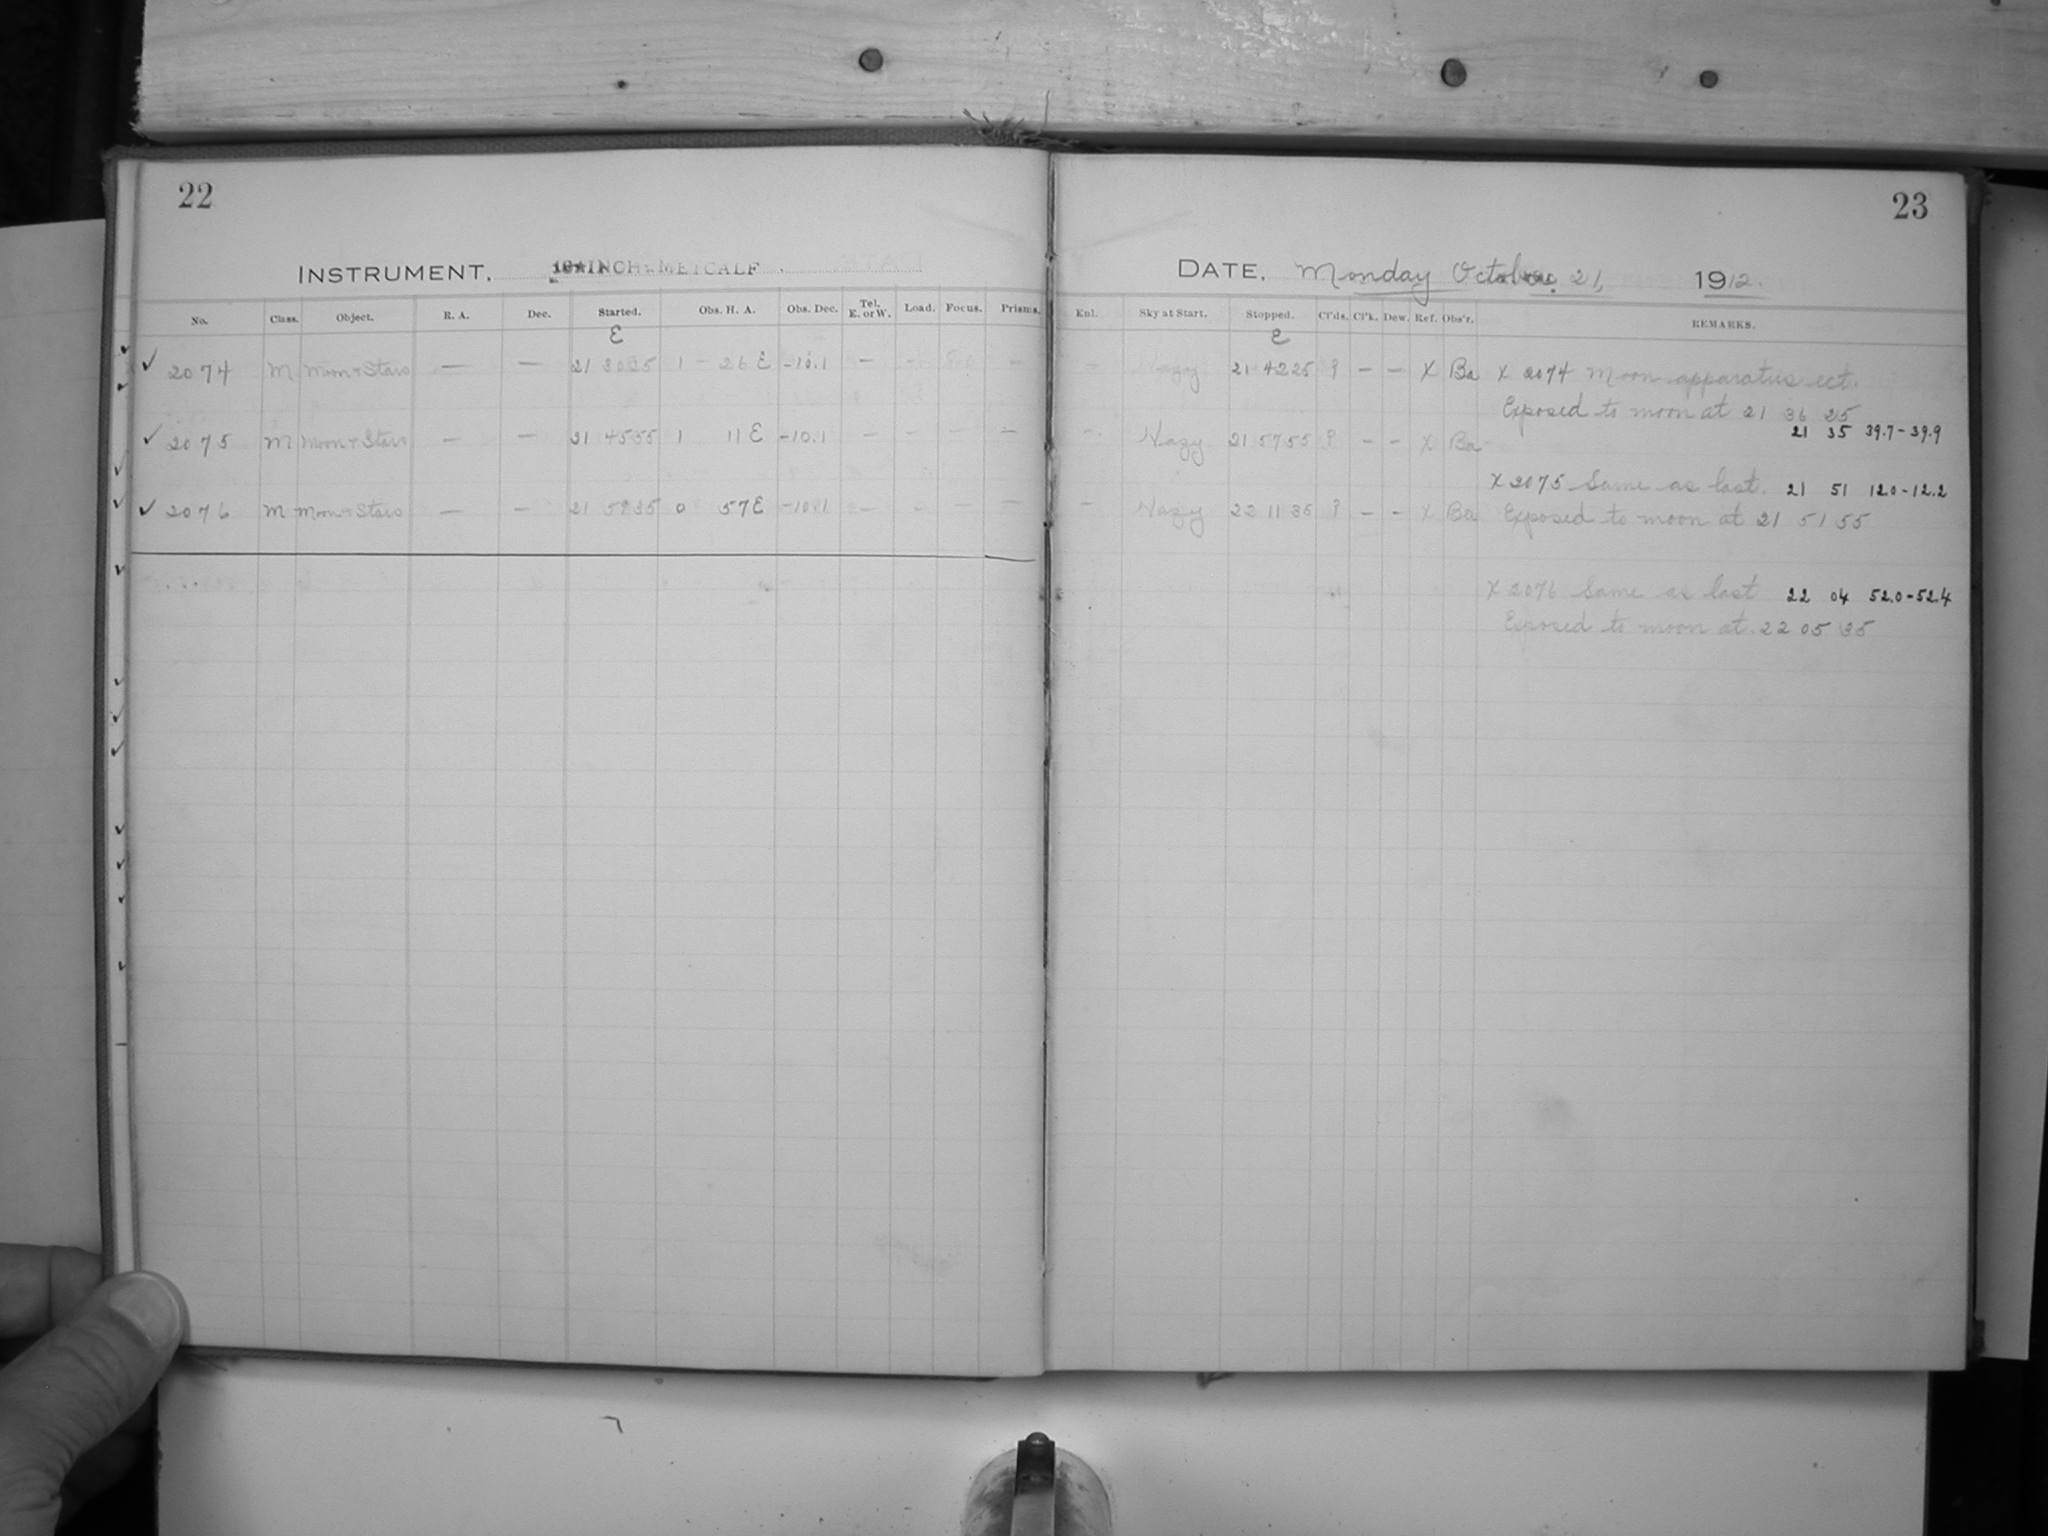 22
INSTRUMENT, INCH METCALF
No. Class. Object. R. A. Dec. Started. Obs. H. A. Obs. Dec. Tel. E. or W. Load. Focus. Prisms.
E
2074 M Moon + Stars — — 21 30 25 1 - 26 E -10.1 — - 5.0 —
2075 M Moon + Stars — — 21 45 55 1 11 E -10.1 — - — —
2076 M Moon + Stars — — 21 59 35 0 57 E -10.1 — - — —
23
DATE, Monday October 21, 1912.
Enl. Sky at Start. Stopped. Cl'ds. Cl'k. Dew. Ref. Obs'r. REMARKS.
E
- Hazy 21 42 25 ? — — X Ba X 2074 Moon apparatus ect.
Exposed to moon at 21 36 25
21 35 39.7-39.9
- Hazy 21 57 55 ? - - X Ba
X 2075 Same as last. 21 51 12.0-12.2
- Hazy 22 11 35 ? — - X Ba Exposed to moon at 21 51 55
X 2076 Same as last 22 04 52.0-52.4
Exposed to moon at 22 05 35